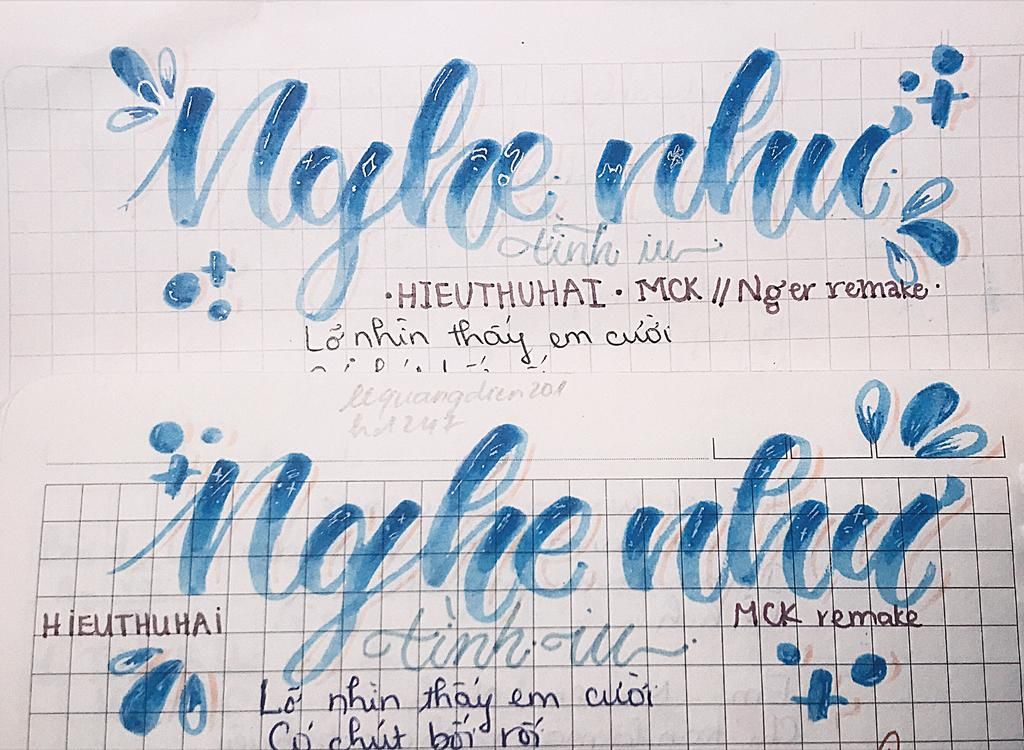 Nghe như
tình iu
·HIEUTHUHAI· MCK // Nger remake·
Lỡ nhìn thấy em cười
lequangdien201
Nghe như
HiEUTHUHAi
MCK remake
tình iu
Lỡ nhìn thấy em cười
Có chút bối rối